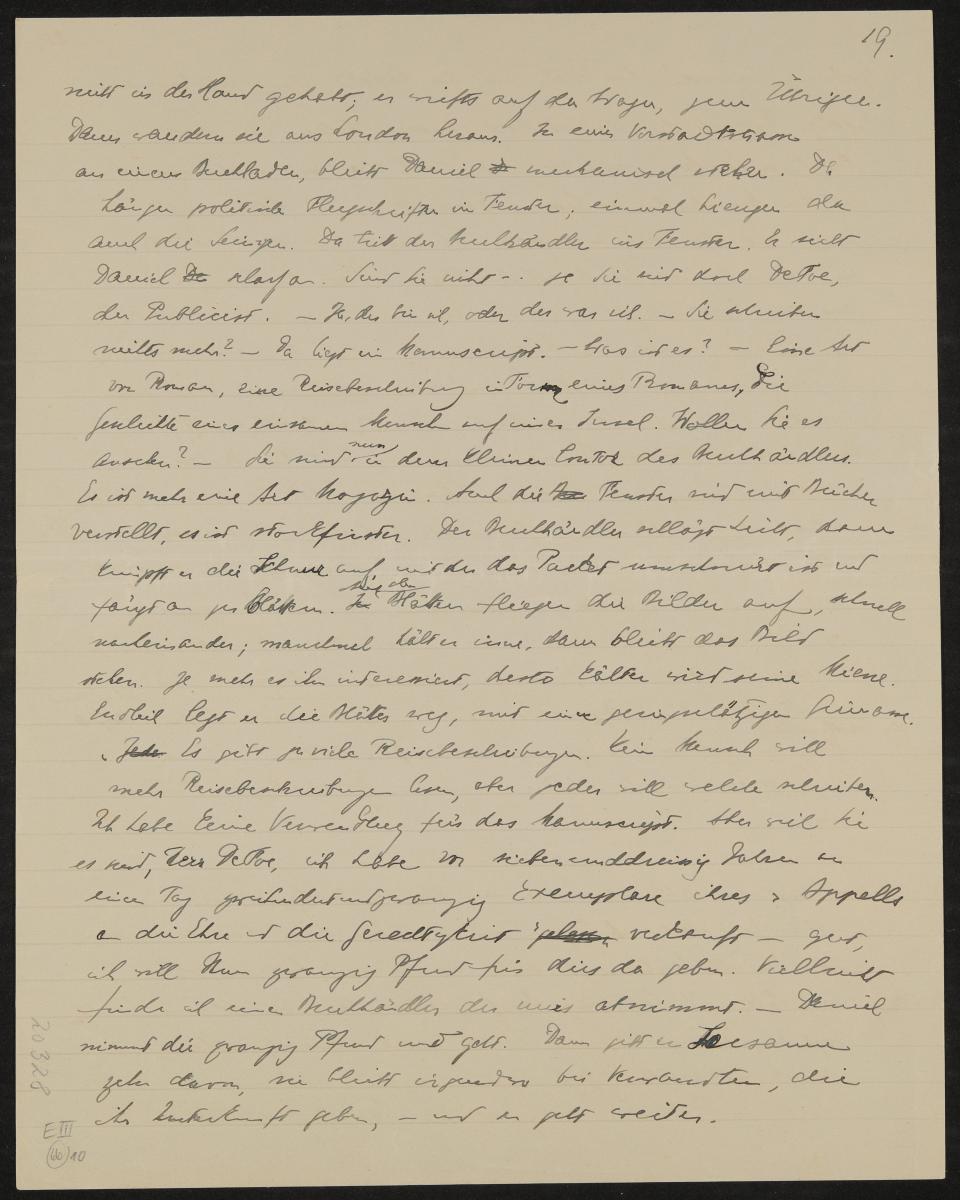 19.
nicht in der Hand gehabt; er wirfts auf den Wagen, zum Übrigen.
Dann wandern sie aus London heraus. In einer Vorstadtstrasse
an einem Buchladen, bleibt Daniel mechanisch stehen. Da
hängen politische Flugschriften im Fenster, einmal hiengen da
auch die Seinigen. Da tritt der Buchhändler ins Fenster. Er sieht
Daniel De scharf an. Sind Sie nicht -.. ja Sie sind doch DeFoe,
der Publicist. – Ja, der bin ich, oder der war ich. – Sie schreiben
nichts mehr? – Da liegt ein Manuscript. – Was ist es? – Eine Art
von Roman, eine Reisebeschreibung in Form eines Romanes, die
Geschichte eines einsamen Menschen auf einer Insel. Wollen Sie es
ansehen? – Sie sind nun in dem kleinen Contor des Buchhändlers.
Es ist mehr eine Art Magazin. Auch die Fenster sind mit Bücher
verstellt, es ist stockfinster. Der Buchhändler schlägt Licht, dann
knüpft er die Schnur auf mit der das Packet umschnürt ist und
fängt an zu blättern. Im Blättern fliegen die Bilder auf, schnell
nacheinander; manchmal hält er inne, dann bleibt das Bild
stehen. Je mehr es ihn interessiert, desto kälter wird seine Miene.
Endlich legt er die Blätter weg, mit einer geringschätzigen Grimasse.
„Jede Es gibt zu viele Reisebeschreibungen. Kein Mensch will
mehr Reisebeschreibungen lesen, aber jeder will welche schreiben.
Ich habe keine Verwendung für das Manuscript. Aber weil Sie
es sind, Herr DeFoe, ich habe vor siebenunddreissig Jahren an
einem Tag zweihundertundzwanzig Exemplare ihres Appells
an die Ehre und die Gerechtigkeit verkauft – gut,
ich will Ihnen zwanzig Pfund für dies da geben. Vielleicht
finde ich einen Buchhändler der mirs abnimmt. – Daniel
nimmt die zwanzig Pfund und geht. Dann gibt er Susanne
zehn davon, sie bleibt irgendwo bei Verwandten, die
ihr Unterkunft geben, – und er geht weiter.
20328
E III
10